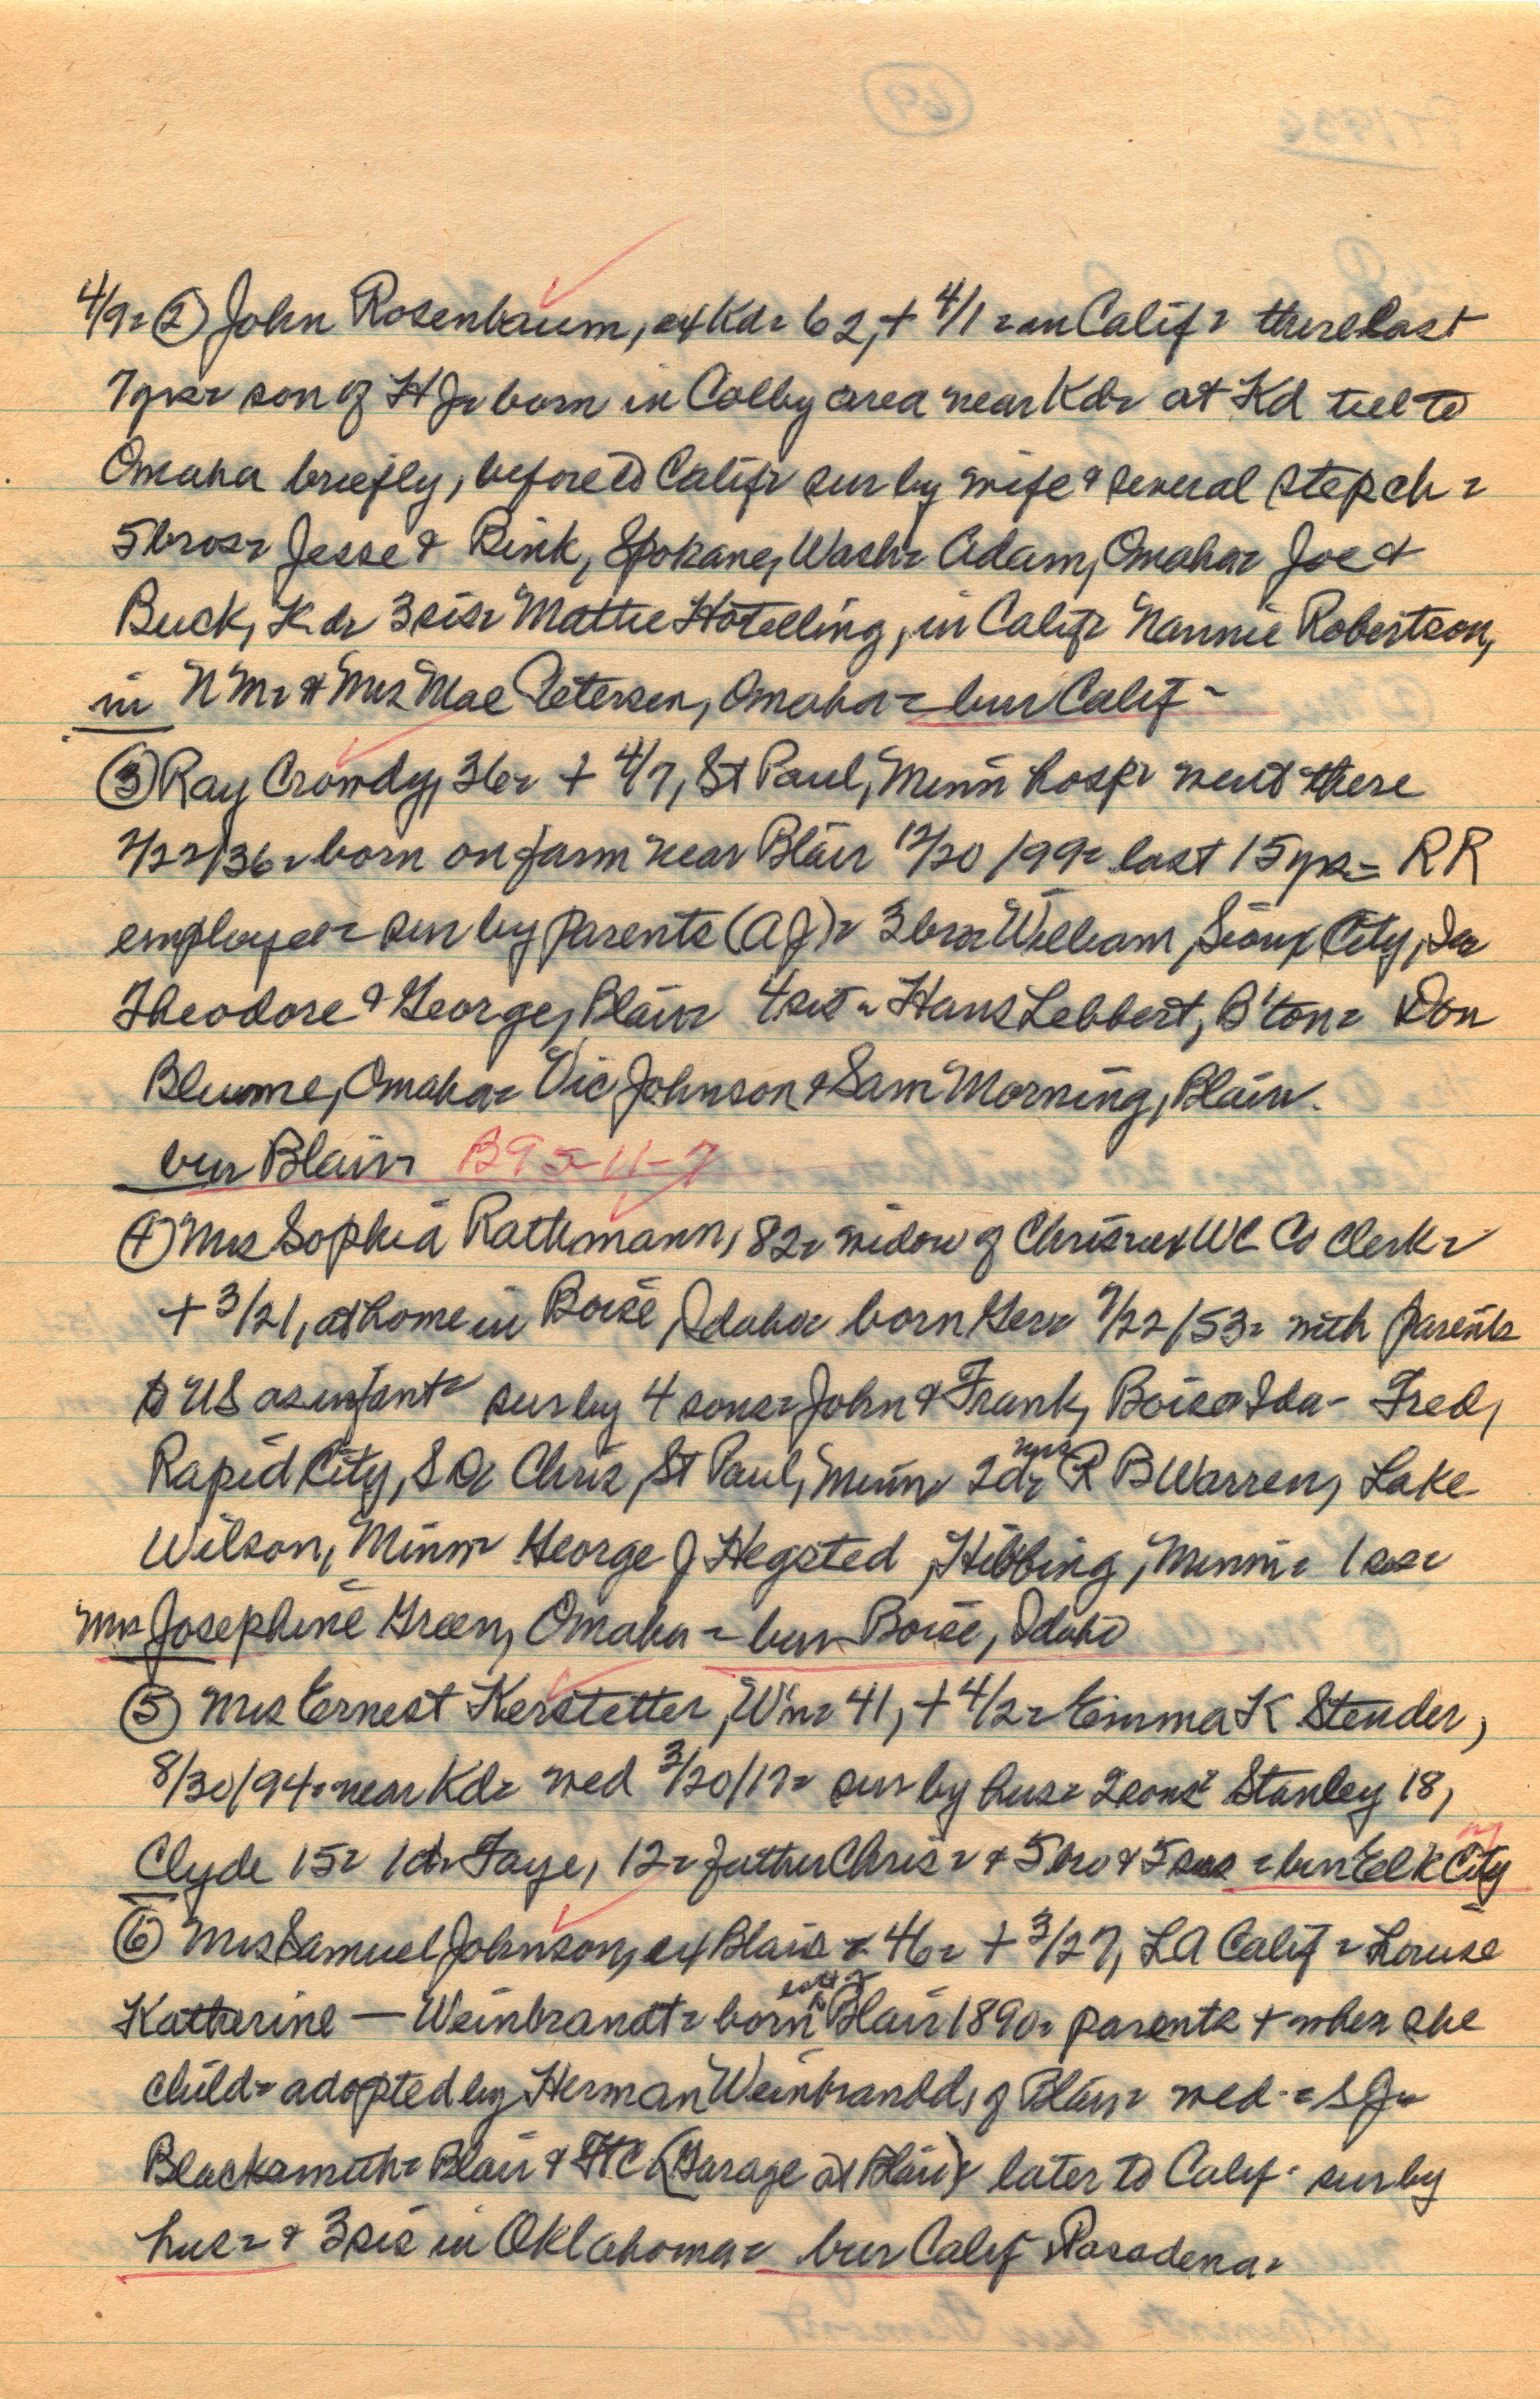 4/9 = ② John Rosenbaum, ex Kd = 62, + 4/1 = in Calif = there last
7 yrs = son of H J = born in Colby area near Kd = at Kd till to
Omaha briefly, before to Calif = sur by wife & several step ch =
5 bros = Jesse & Rink, Spokane, Wash = Adam, Omaha = Joe &
Buck, Kd = 3 sis = Mattie Hotelling, in Calif = Nannie Robertson,
in N M = & Mrs Mae Petersen, Omaha = bur Calif -
③ Ray Crowdy, 36 = + 4/7, St Paul, Minn hosp = went there
2/22/36 = born on farm near Blair 12/20/99 = last 15 yrs = RR
employee = sur by parents (A J) = 3 bro = William, Sioux City, Ia
Theodore & George, Blair = 4 sis = Hans Lebbert, B'ton = Don
Blume, Omaha = Vic Johnson & Sam Morning, Blair.
bur Blair = B95-11-7
④ Mrs Sophia Rathmann, 82 = widow of Chris = ex WC Co Clerk =
+ 3/21, at home in Boise, Idaho = born Ger = 7/22/53 = with parents
to US as infant = sur by 4 sons = John & Frank, Boise Ida - Fred,
Rapid City, S D = Chris, St Paul, Minn = 2 d = Mrs R B Warren, Lake
Wilson, Minn = George J Hegsted, Hibbing, Minn = 1 sis =
Mrs Josephine Green, Omaha = bur Boise, Idaho
⑤ Mrs Ernest Kerstetter, W'n = 41, + 4/2 = Emma K Stender,
8/30/94 = near Kd = wed 3/20/17 = sur by hus = 2 sons = Stanley 18,
Clyde 15 = 1 d = Faye, 12 = father Chris = & 5 bro & 5 sis = bur Elk City
⑥ Mrs Samuel Johnson, ex Blair = 46 = + 3/27, LA Calif = Louise
Katherine — Weinbrandt = born east of Blair 1890 = parents + when she
child = adopted by Herman Weinbrandt, of Blair = wed = S J =
Blacksmith = Blair & FtC (Garage at Blair) = later to Calif = sur by
hus = & 3 sis in Oklahoma = bur Calif Pasadena =